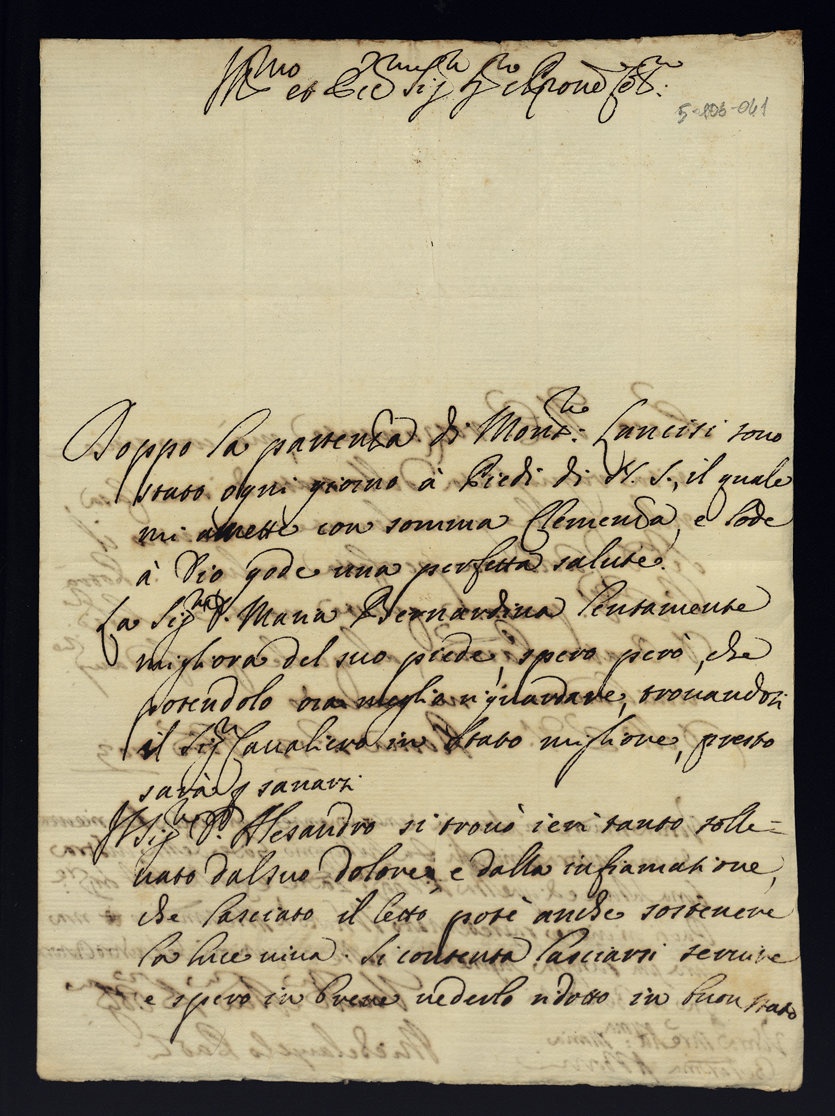 Ill.mo et Ecc.mo Sig.r Sig.r Prone Col.mo
5-106-041
Doppo la partenza di Mons.re Lancisi sono
stato ogni giorno à Piedi di N. S., il quale
mi amette con somma Clemenza, e lode
à Dio gode una perfetta salute.
La Sig.ra D. Maria Bernardina lentamente
migliora del suo piede, spero però, che
potendolo ora meglio riguardare, trouandosi
il Sig.r Caualiero in stato migliore, presto
sarà p sanarsi
Il Sig.r D. Alesandro si trouò ieri tanto solle=
uato dal suo dolore, e dalla infiamatione,
che lasciato il letto potè anche sostenere
la luce uiua. Si contenta lasciarsi seruire
e spero in breue uederlo ridotto in buon stato